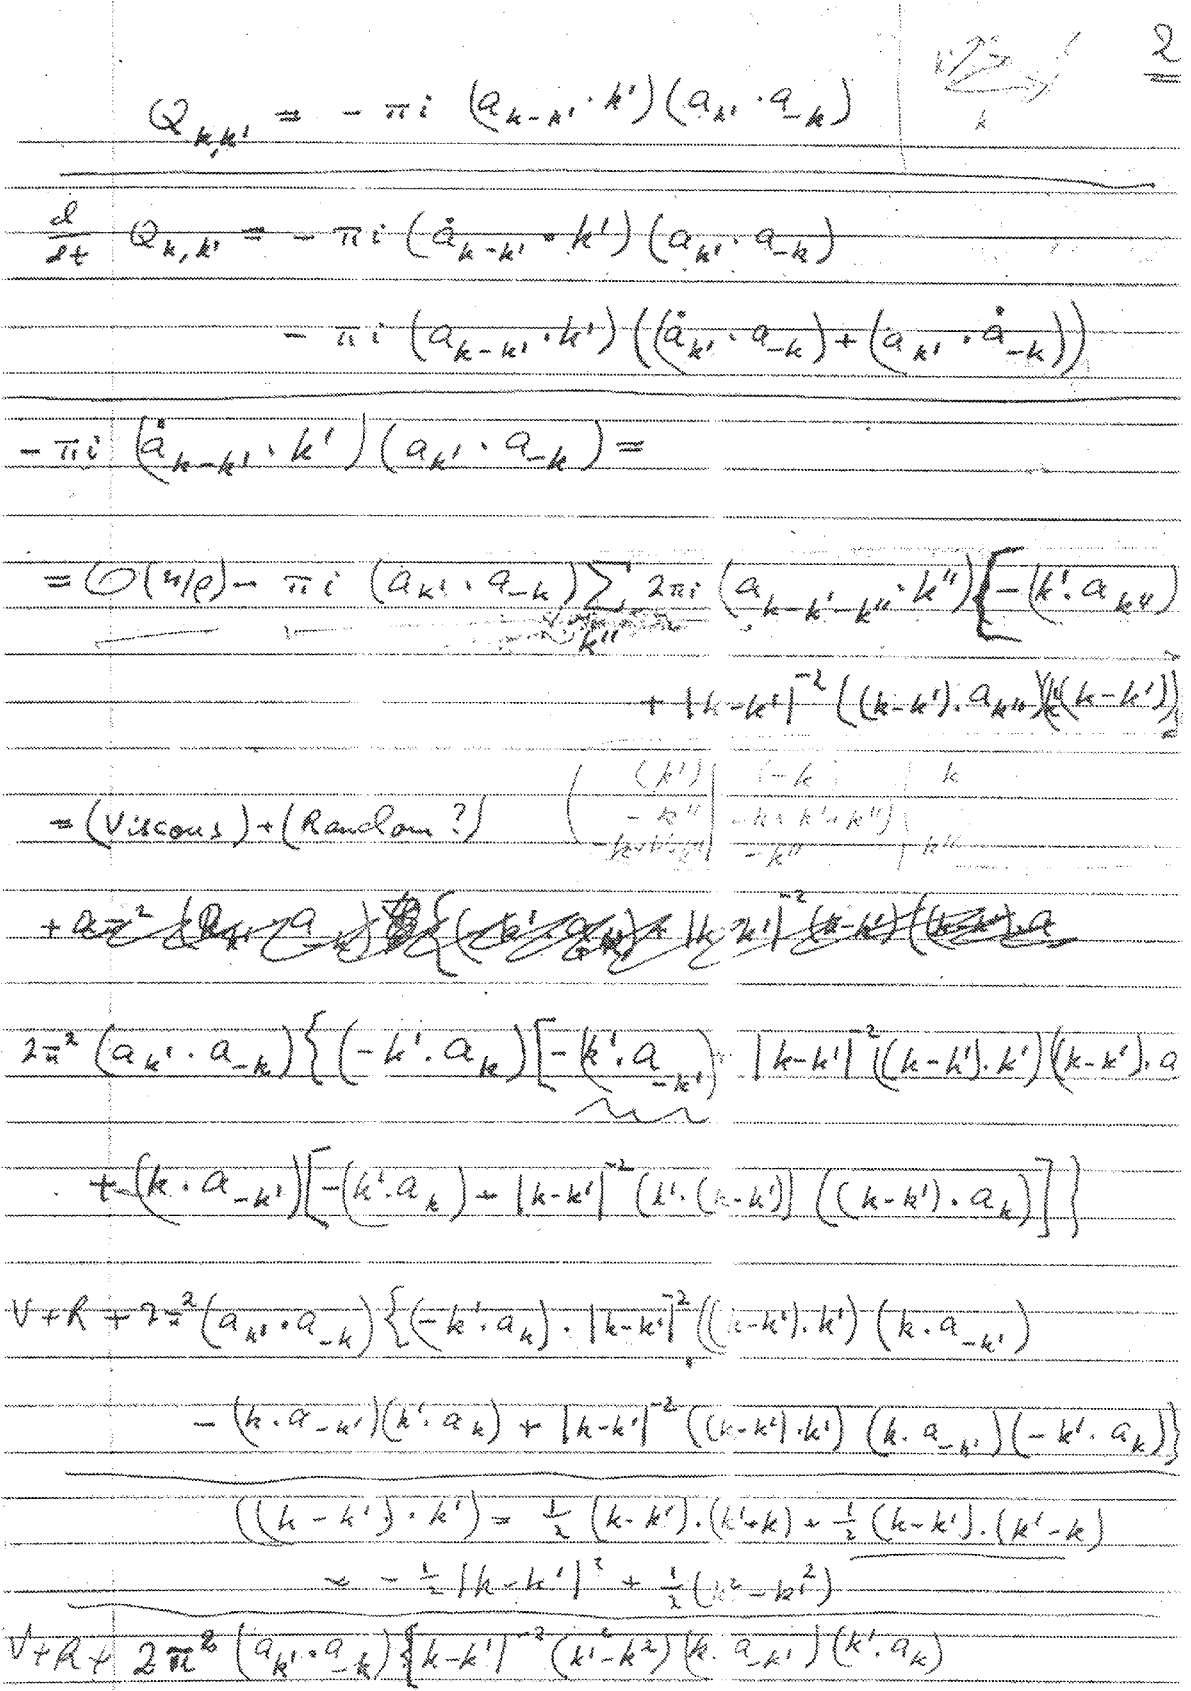 2
k'
k
Q_{k,k'} = - πi (a_{k-k'} · k') (a_{k'} · a_{-k})
d/dt Q_{k,k'} = - πi (ȧ_{k-k'} · k') (a_{k'} · a_{-k})
- πi (a_{k-k'} · k') ((ȧ_{k'} · a_{-k}) + (a_{k'} · ȧ_{-k}))
- πi (ȧ_{k-k'} · k') (a_{k'} · a_{-k}) =
= O(η/ρ) - πi (a_{k'} · a_{-k}) Σ_{k''} 2πi (a_{k-k'-k''} · k'') [-(k' · a_{k''})
+ |k-k'|^{-2} ((k-k') · a_{k''}) (k' · (k-k'))]
(k') (-k) k
= (Viscous) + (Random?) -k'' -k+k'+k''
-k+k'+k'' -k'' k''
2π² (a_{k'} · a_{-k}) { (-k' · a_k) [-(k' · a_{-k'}) + |k-k'|^{-2} ((k-k') · k') ((k-k') · a
+ (k · a_{-k'}) [-(k' · a_k) + |k-k'|^{-2} (k' · (k-k')) ((k-k') · a_k)] }
V+R + 2π² (a_{k'} · a_{-k}) { (-k' · a_k) · |k-k'|^{-2} ((k-k') · k') (k · a_{-k'})
- (k · a_{-k'}) (k' · a_k) + |k-k'|^{-2} ((k-k') · k') (k · a_{-k'}) (-k' · a_k) }
((k-k') · k') = 1/2 (k-k') · (k'+k) + 1/2 (k-k') · (k'-k)
= - 1/2 |k-k'|² + 1/2 (k² - k'²)
V+R+ 2π² (a_{k'} · a_{-k}) { |k-k'|^{-2} (k'² - k²) (k · a_{-k'}) (k' · a_k)